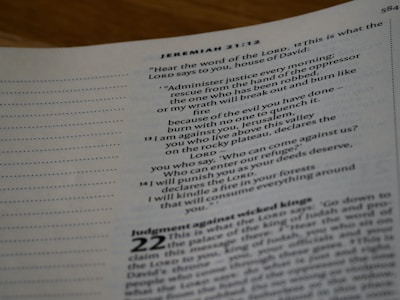 JEREMIAH 21:12
584
"Hear the word of the LORD, 12 This is what the
LORD says to you, house of David:
"'Administer justice every morning;
rescue from the hand of the oppressor
the one who has been robbed,
or my wrath will break out and burn like
fire
because of the evil you have done –
burn with no one to quench it.
13 I am against you, Jerusalem,
you who live above this valley
on the rocky plateau, declares the
LORD –
you who say, 'Who can come against us?
Who can enter our refuge?'
14 I will punish you as your deeds deserve,
declares the LORD.
I will kindle a fire in your forests
that will consume everything around
you.'"
Judgment against wicked kings
22 This is what the LORD says: 'Go down to
the palace of the king of Judah and
claim this message there: 2 "Hear the word of
the LORD to you, king of Judah, you who sit on
David's throne – you, your officials